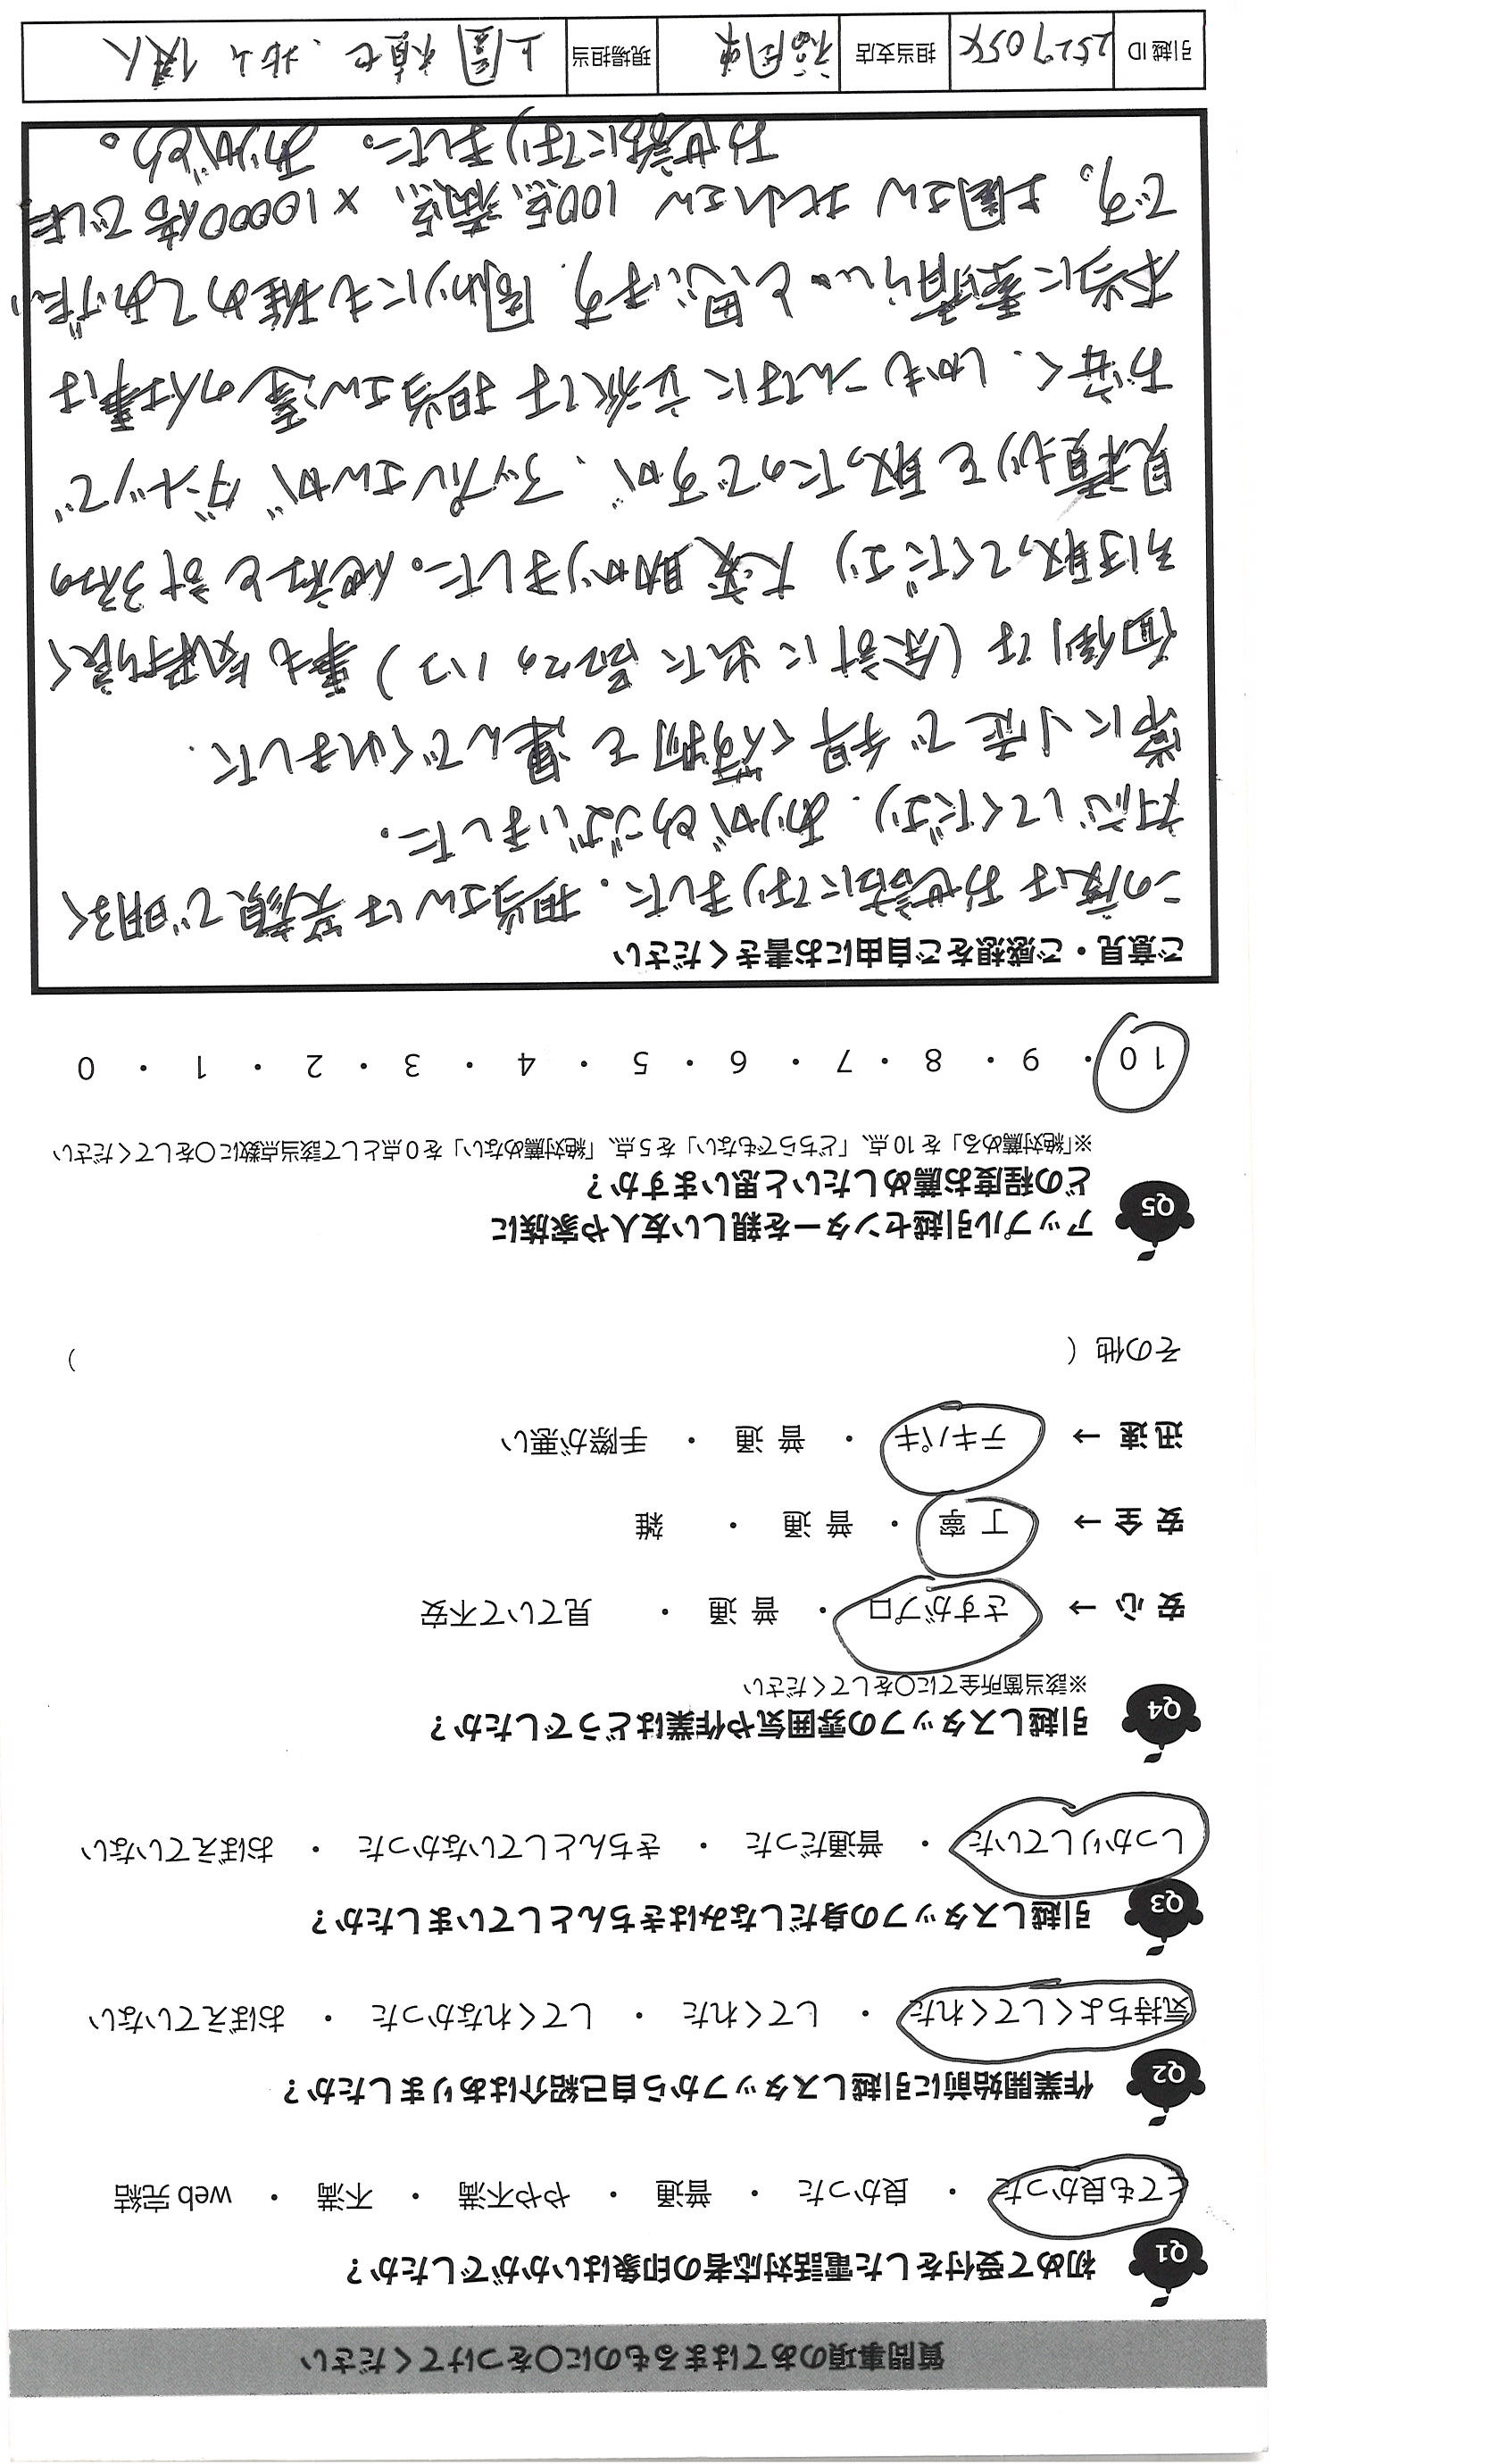 質問事項のあてはまるものに〇をつけてください
Q1 初めて受付をした電話対応者の印象はいかがでしたか？
とても良かった ・ 良かった ・ 普通 ・ やや不満 ・ 不満 ・ web 完結
Q2 作業開始前に引越しスタッフから自己紹介はありましたか？
気持ちよくしてくれた ・ してくれた ・ してくれなかった ・ おぼえていない
Q3 引越しスタッフの身だしなみはきちんとしていましたか？
しっかりしていた ・ 普通だった ・ きちんとしていなかった ・ おぼえていない
Q4 引越しスタッフの雰囲気や作業はどうでしたか？
※該当箇所全てに〇をしてください
安 心 → さすがプロ ・ 普 通 ・ 見ていて不安
安 全 → 丁 寧 ・ 普 通 ・ 雑
迅 速 → テキパキ ・ 普 通 ・ 手際が悪い
その他 （ ）
Q5 アップル引越センターを親しい友人や家族に
どの程度お薦めしたいと思いますか？
※「絶対薦める」を 10 点、「どちらでもない」を 5 点、「絶対薦めない」を 0 点として該当点数に〇をしてください
10 ・ 9 ・ 8 ・ 7 ・ 6 ・ 5 ・ 4 ・ 3 ・ 2 ・ 1 ・ 0
ご意見・ご感想をご自由にお書きください
この度はお世話になりました。担当さんは笑顔で明るく
対応してくださり、ありがとうございました。
常に小走で手早く荷物を運んでくれました。
面倒な（余計に出た 段ハコ）事も気持ち良く
引き取ってくださり 大変助かりました。他社と計3社の
見積もりを取ったのですが、アップルさんが ダントツで
お安く、しかもこんなに立派な 担当さん達の仕事は
本当に素晴らしいと思います。周わりにも進めてあげたい
です。上園さん 北山さん 100点満点 ×10000倍でした
お世話になりました。ありがとう。
引越 ID 252705 担当支店 福岡東 現場担当 上園 北山